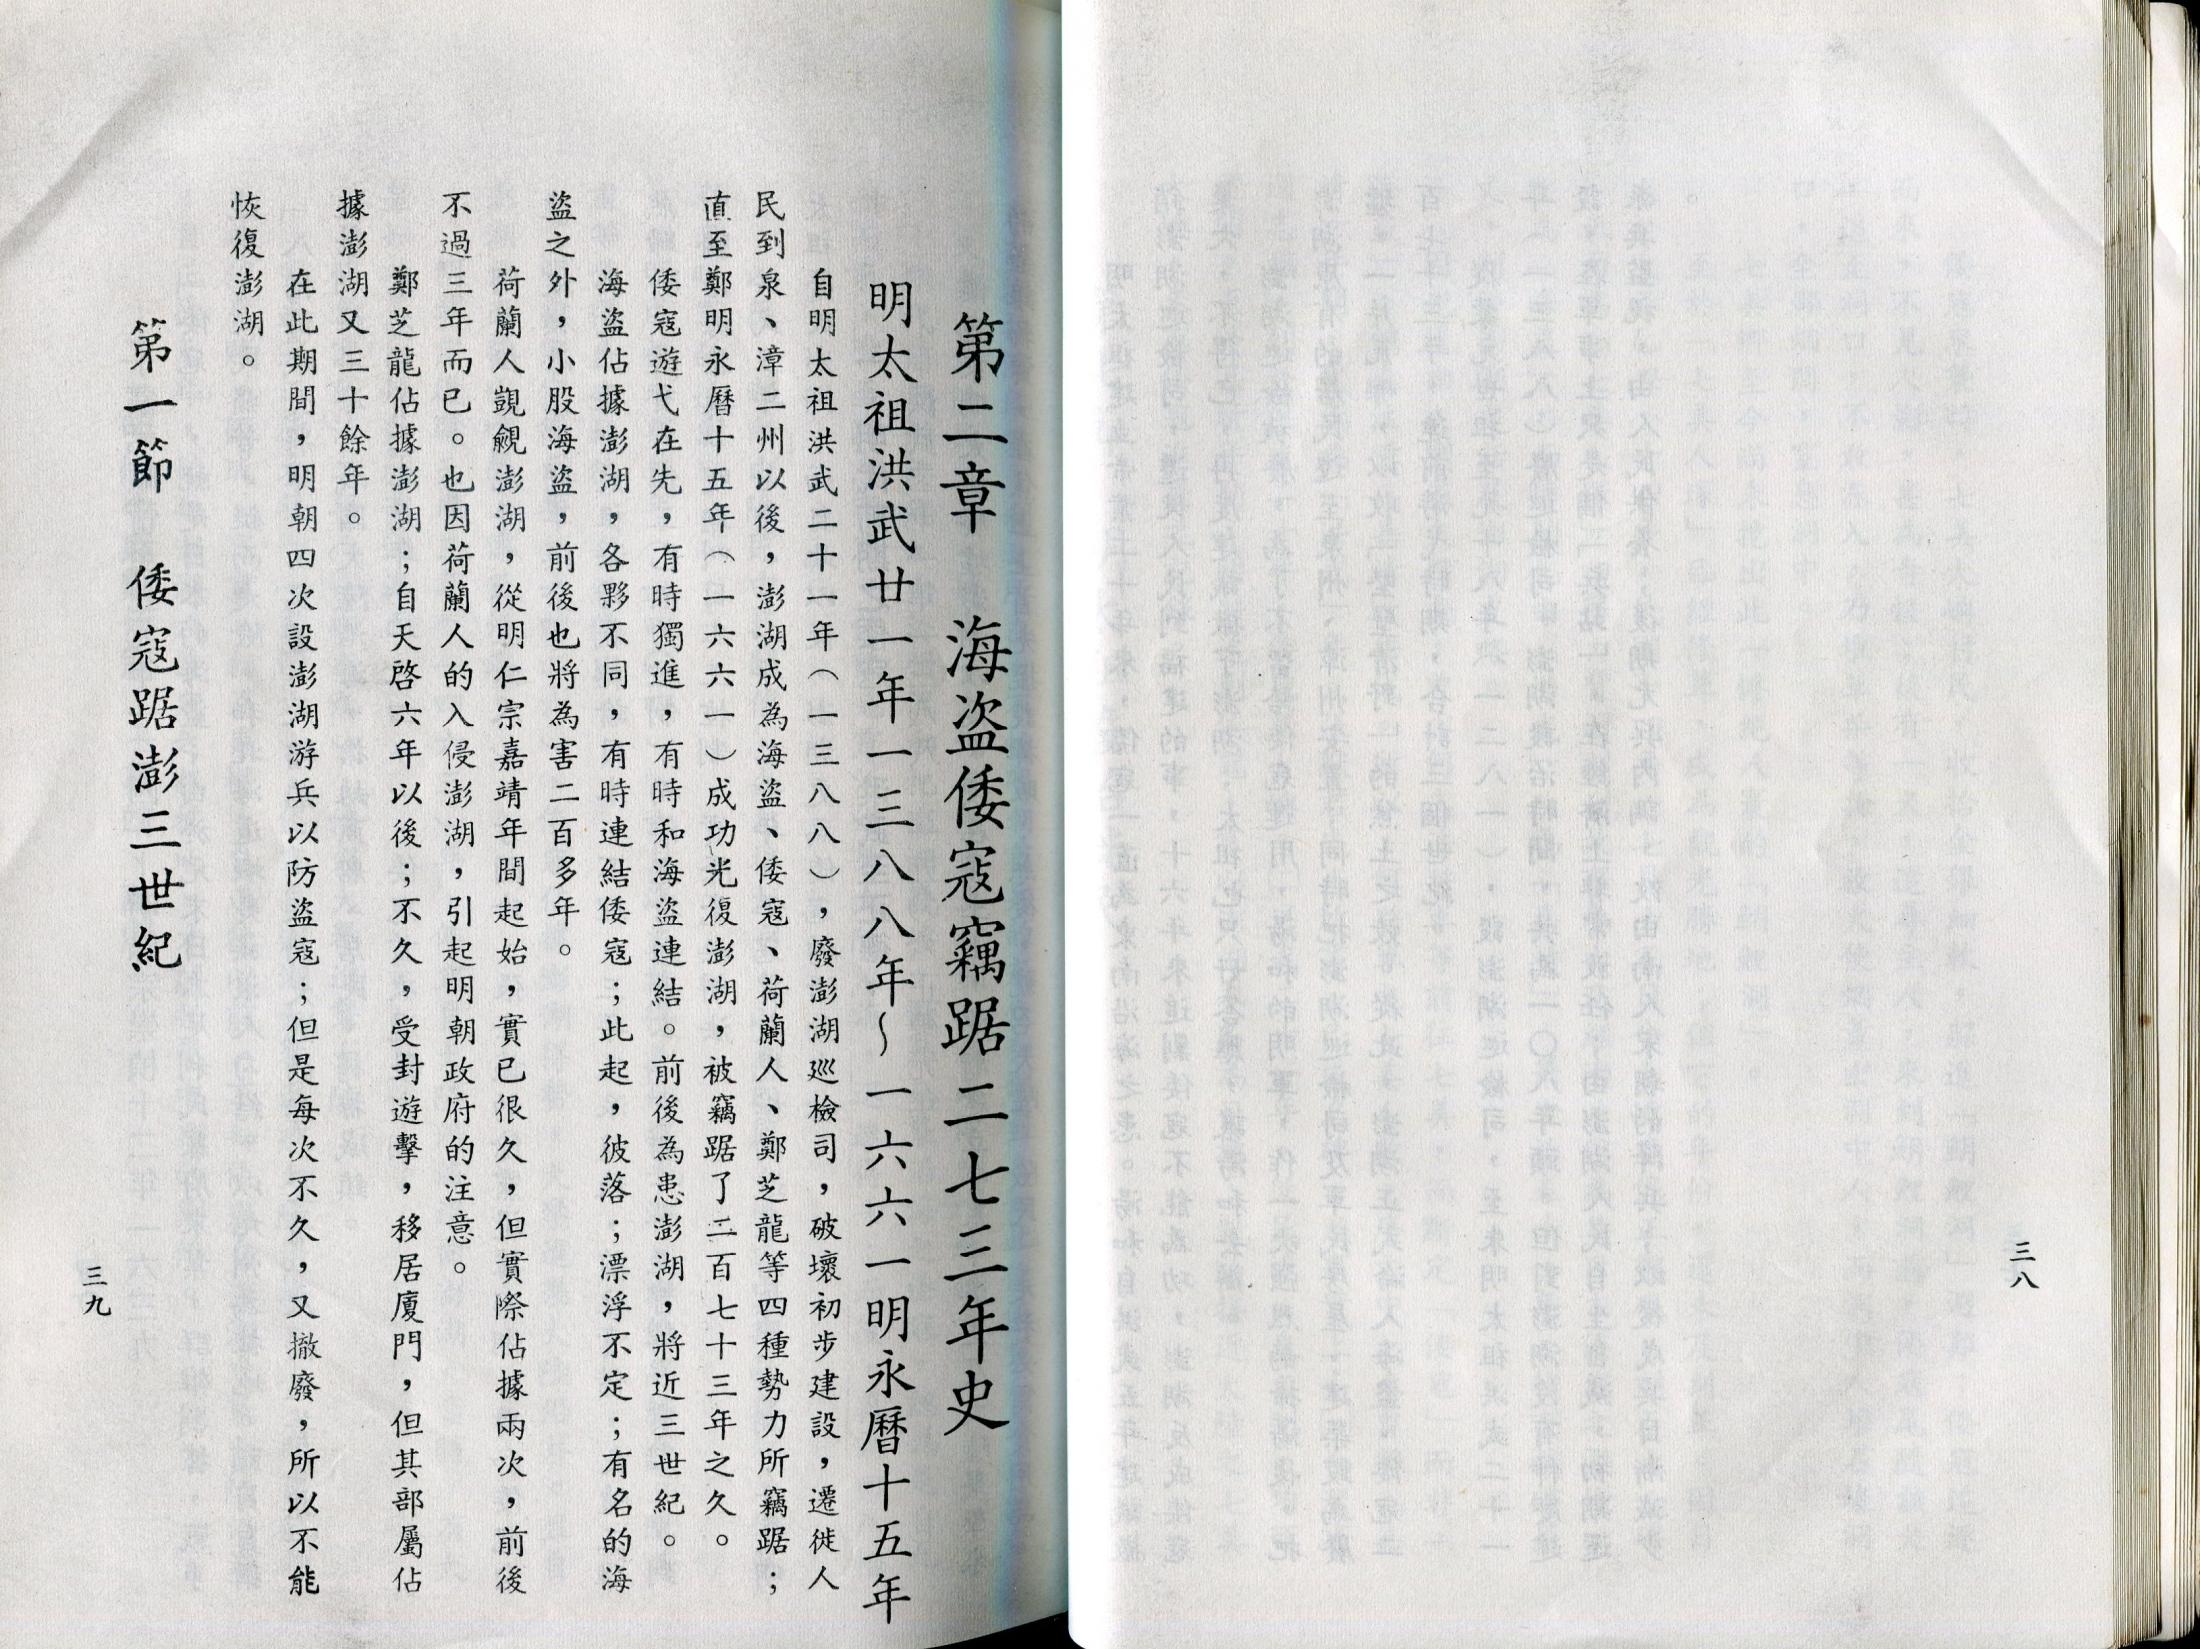 三八
第二章　海盜倭寇竊踞二七三年史
明太祖洪武廿一年一三八八年～一六六一明永曆十五年
自明太祖洪武二十一年（一三八八），廢澎湖巡檢司，破壞初步建設，遷徙人
民到泉、漳二州以後，澎湖成為海盜、倭寇、荷蘭人、鄭芝龍等四種勢力所竊踞；
直至鄭明永曆十五年（一六六一）成功光復澎湖，被竊踞了二百七十三年之久。
倭寇遊弋在先，有時獨進，有時和海盜連結。前後為患澎湖，將近三世紀。
海盜佔據澎湖，各夥不同，有時連結倭寇；此起，彼落；漂浮不定；有名的海
盜之外，小股海盜，前後也將為害二百多年。
荷蘭人覬覦澎湖，從明仁宗嘉靖年間起始，實已很久，但實際佔據兩次，前後
不過三年而已。也因荷蘭人的入侵澎湖，引起明朝政府的注意。
鄭芝龍佔據澎湖；自天啓六年以後；不久，受封遊擊，移居廈門，但其部屬佔
據澎湖又三十餘年。
在此期間，明朝四次設澎湖游兵以防盜寇；但是每次不久，又撤廢，所以不能
恢復澎湖。
第一節　倭寇踞澎三世紀
三九